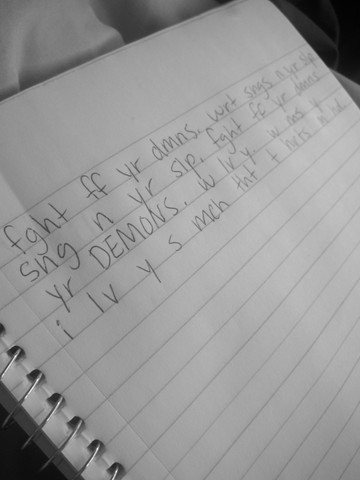 fght ff yr dmns. wrt sngs n yr slp.
sng n yr slp. fght ff yr dmns
yr DEMONS. w lv y. w
i lv y s mch tht t hrts